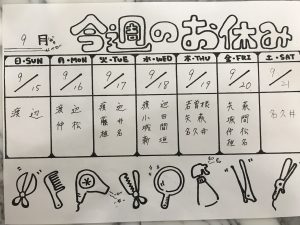 9 月
今週のお休み
日・SUN 月・MON 火・TUE 水・WED 木・THU 金・FRI 土・SAT
9/15 9/16 9/17 9/18 9/19 9/20 9/21
渡辺
渡辺
仲松
渡辺
藤井
名
渡辺
小田
城間
新垣
若曽根
矢萩
名久井
矢萩
城間
仲松
名
名久井